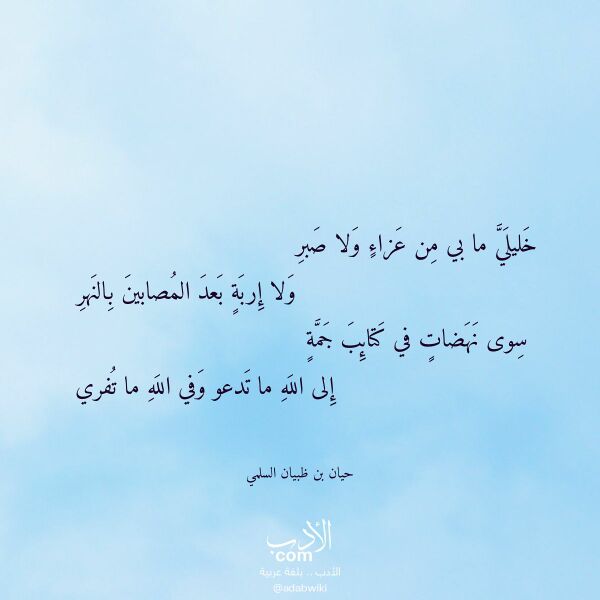 خَليلَيَّ ما بي مِن عَزاءٍ وَلا صَبرِ
وَلا إِربَةٍ بَعدَ المُصابينَ بِالنَهرِ
سِوى نَهَضاتٍ في كَتائِبَ جَمَّةٍ
إِلى اللَهِ ما تَدعو وَفي اللَهِ ما تُفري
حيان بن ظبيان السلمي
الأدب
com
الأدب .. بلغة عربية
@adabwiki